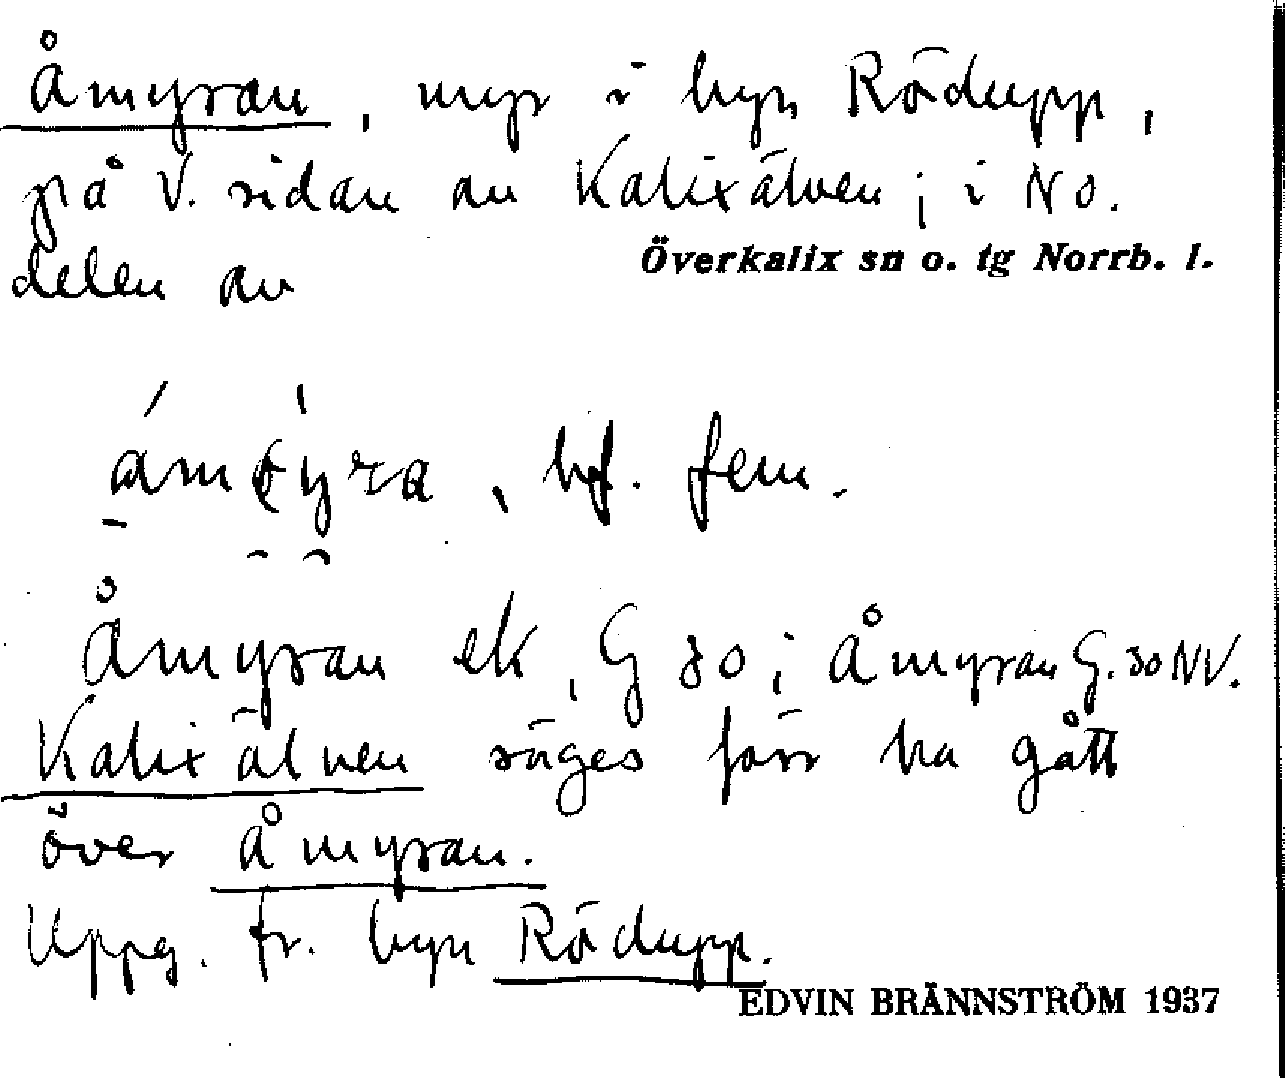 Åmyran, myr i byn Rödupp,
på V. sidan av Kalixälven; i NO.
delen av Överkalix sn o. tg Norrb. l.
bf. fem.
Åmyran ek, G 30; Åmyran G. 30 NV.
Kalixälven säges förr ha gått
över Åmyran.
Uppg. fr. byn Rödupp.
EDVIN BRÄNNSTRÖM 1937